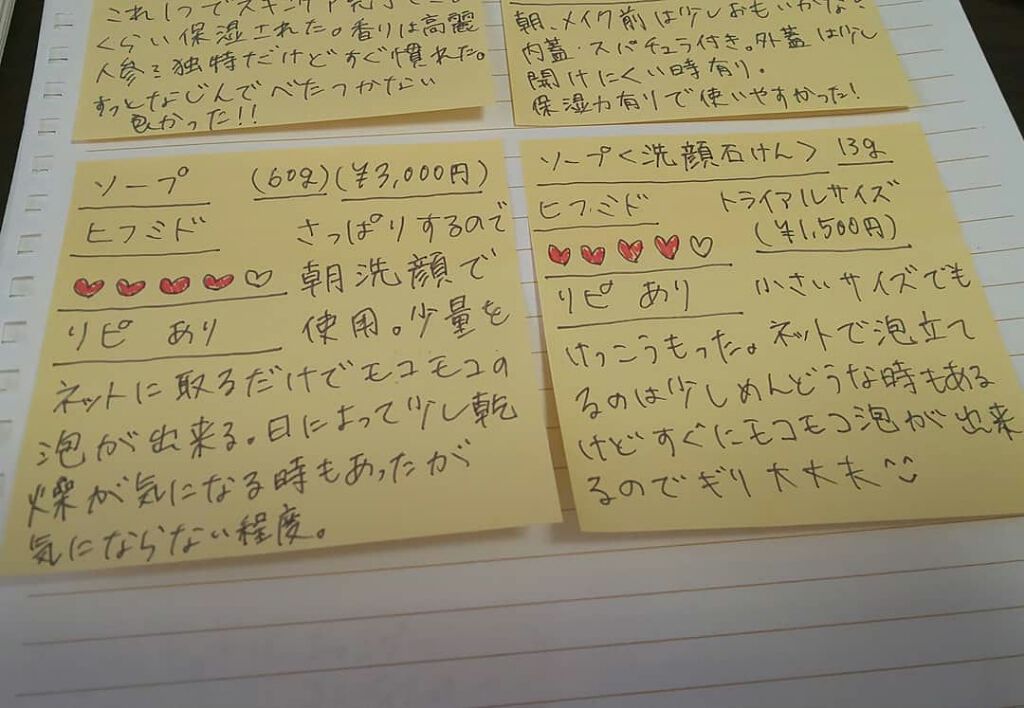 これ1つでスキンケア完了できる
くらい保湿された。香りは高麗
人参で独特だけどすぐ慣れた。
すっとなじんでべたつかない
良かった!!
朝、メイク前は少しおもいかな?
内蓋・スパチュラ付き。外蓋は少し
開けにくい時有り。
保湿力有りで使いやすかった!
ソープ (60g)(¥3,000円)
ヒフミド さっぱりするので
朝洗顔で
リピ あり 使用。少量を
ネットに取るだけでモコモコの
泡が出来る。日によって少し乾
燥が気になる時もあったが
気にならない程度。
ソープ<洗顔石けん> 13g
ヒフミド トライアルサイズ
(¥1,500円)
リピ あり 小さいサイズでも
けっこうもった。ネットで泡立て
るのは少しめんどうな時もある
けどすぐにモコモコ泡が出来
るのでギリ大丈夫^^